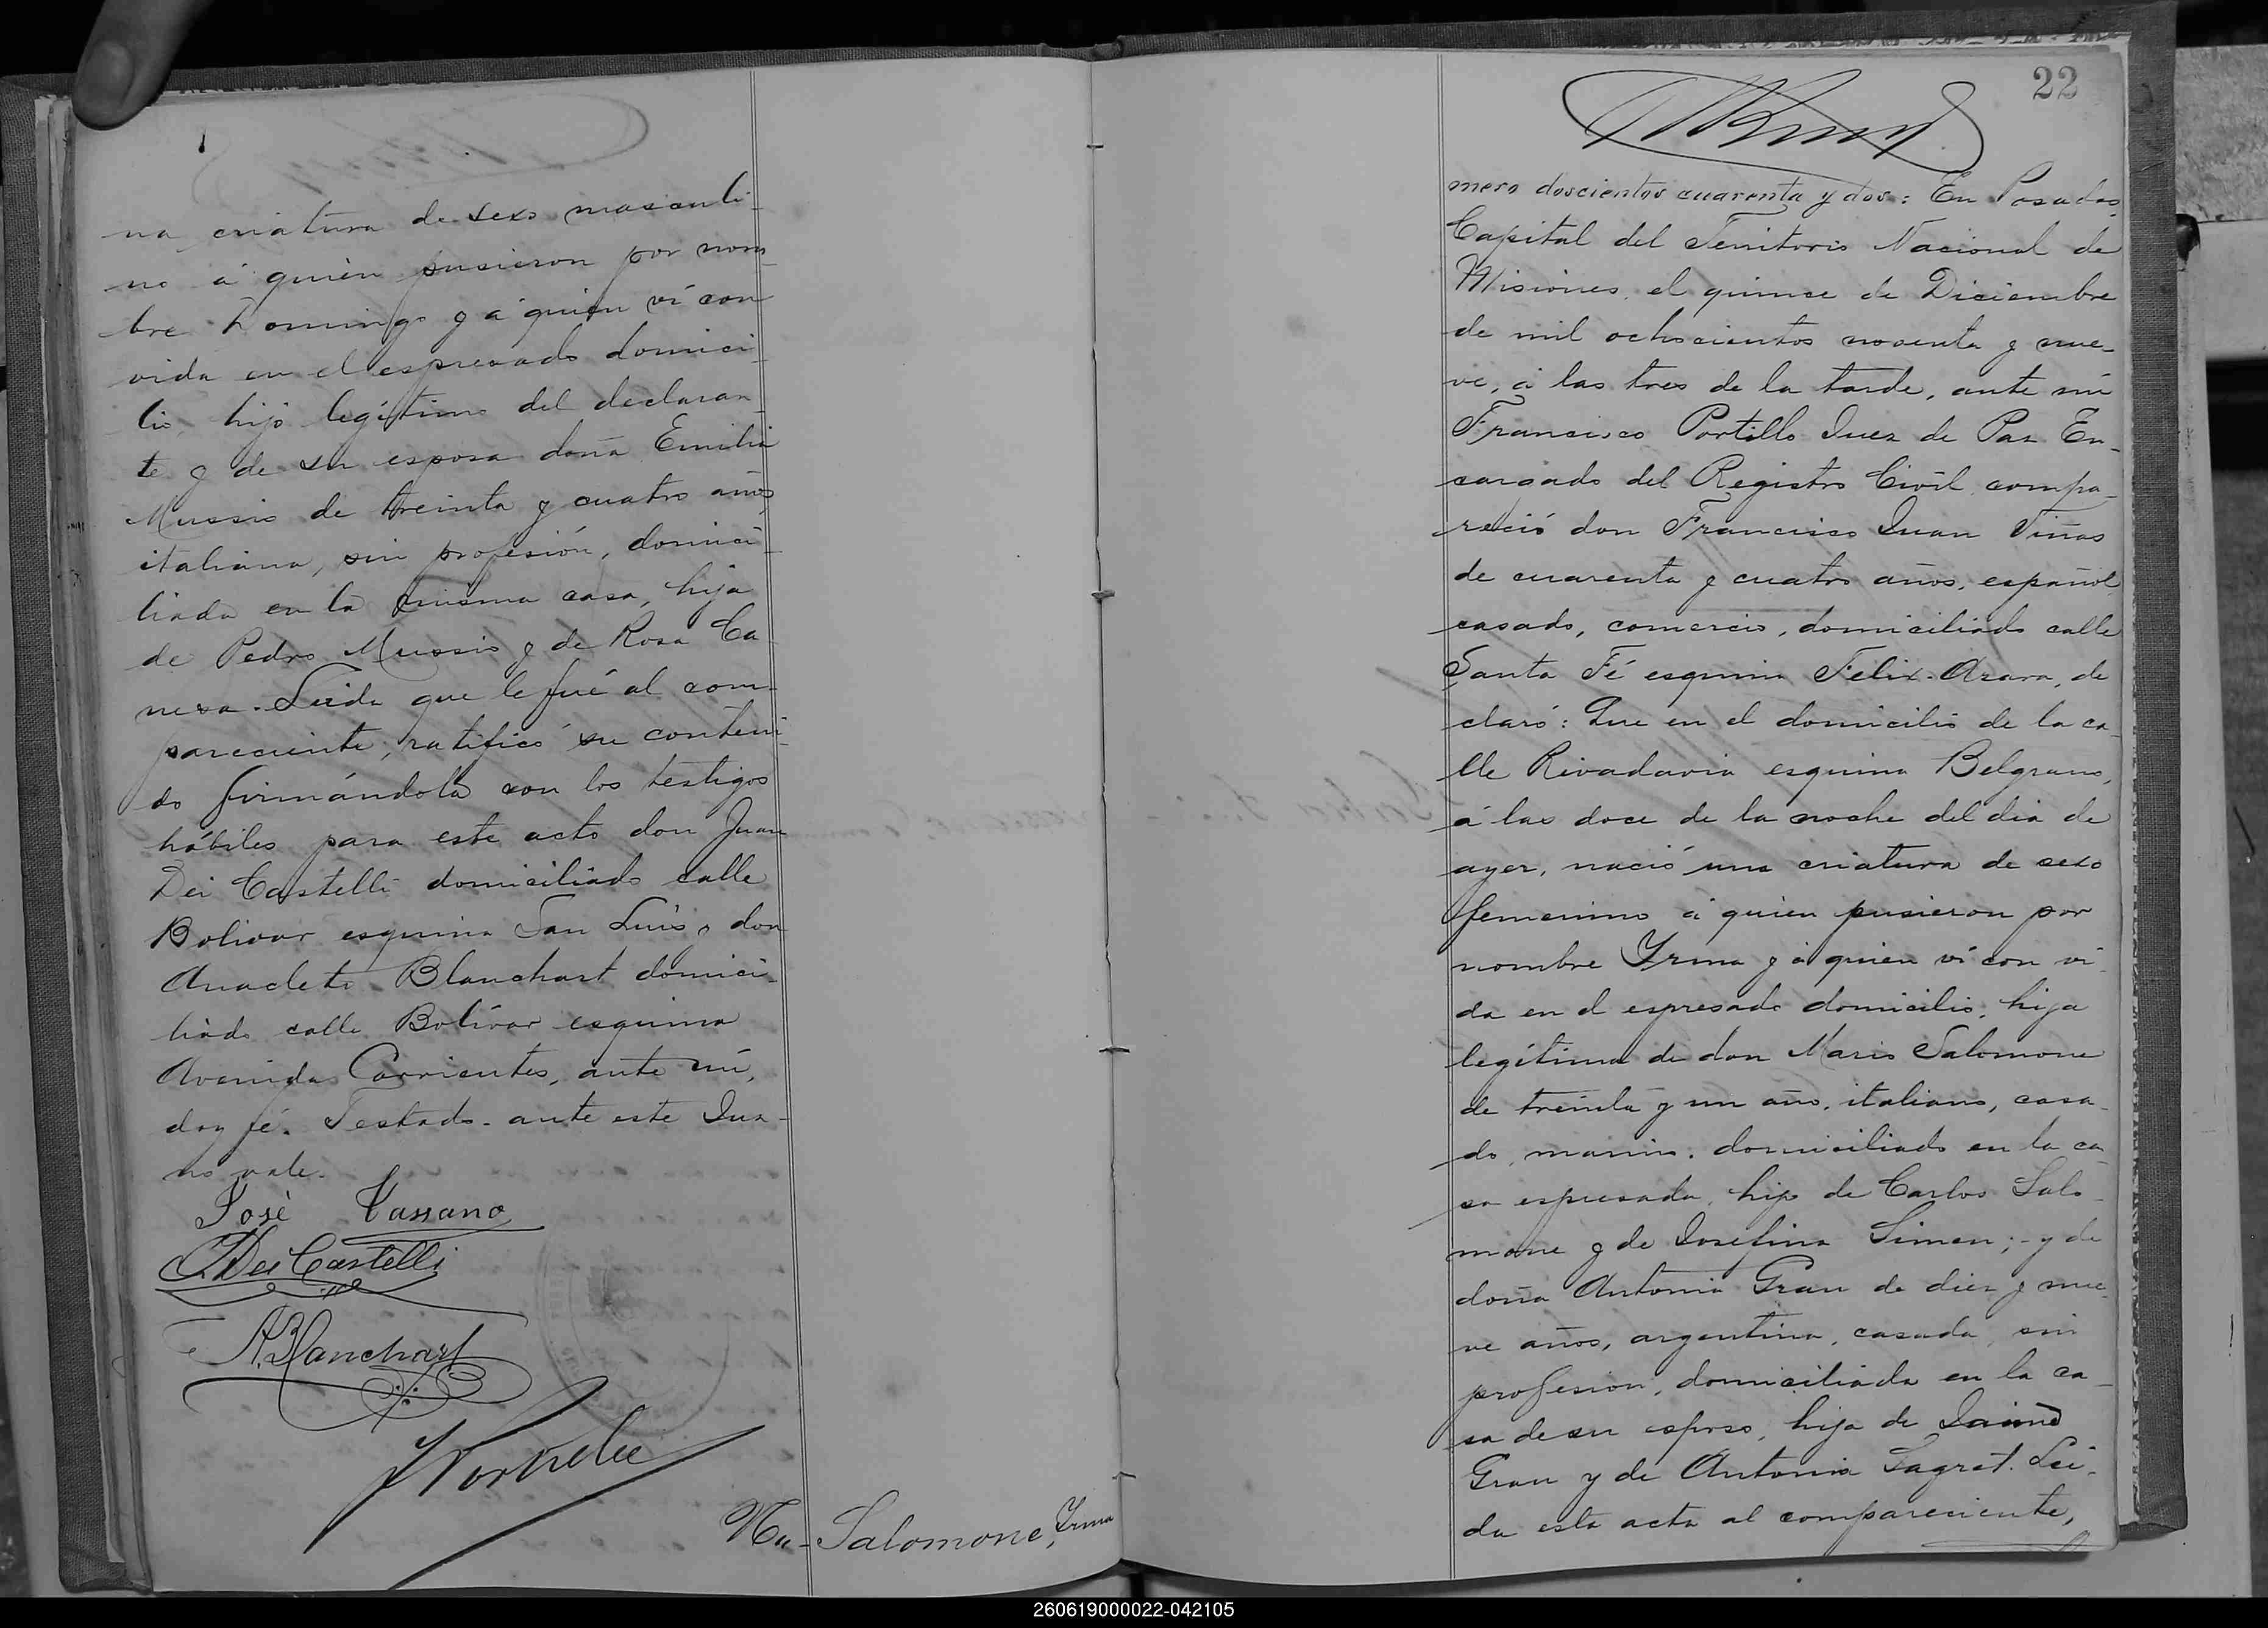 na criatura de sexo masculi-
no á quien pusieron por nom-
bre Domingo y á quien ví con
vida en el espresado domici-
lio, hijo legítimo del declaran-
te y de su esposa doña Emilia
Mussio de treinta y cuatro años,
italiana, sin profesión, domici-
liada en la misma casa, hija
de Pedro Mussio y de Rosa Ca-
nesa. Leida que le fué al com-
pareciente, ratificó su conteni-
do firmándola con los testigos
hábiles para este acto don Juan
Dei Castelli domiciliado calle
Bolivar esquina San Luis y don
Anacleto Blanchart domici-
liado calle Bolívar esquina
Avenida Corrientes, ante mí,
doy fé. Testado - ante este Juz-
no vale.
José Cassano
J. Dei Castelli
A. Blanchart
F Portillo
Nu-
Salomone, Yrma
22
mero doscientos cuarenta y dos: En Posadas,
Capital del Territorio Nacional de
Misiones, el quince de Diciembre
de mil ochocientos noventa y nue-
ve, á las tres de la tarde, ante mí
Francisco Portillo Juez de Paz En-
cargado del Registro Civil, compa-
reció don Francisco Juan Viñas
de cuarenta y cuatro años, español
casado, comercio, domiciliado calle
Santa Fé esquina Felix Azara, de
claró: Que en el domicilio de la ca-
lle Rivadavia esquina Belgrano,
á las doce de la noche del dia de
ayer, nació una criatura de sexo
femenino á quien pusieron por
nombre Yrma y á quien ví con vi-
da en el espresado domicilio; hija
legítima de don Mario Salomone
de treinta y un año, italiano, casa-
do, marino, domiciliado en la ca-
sa espresada, hijo de Carlos Salo-
mone y de Josefina Simen; - y de
doña Antonia Grau de diez y nue-
ve años, argentina, casada, sin
profesion, domiciliada en la ca-
sa de su esposo, hija de Jaime
Grau y de Antonia Sagret. Lei-
da esta acta al compareciente,
260619000022-042105